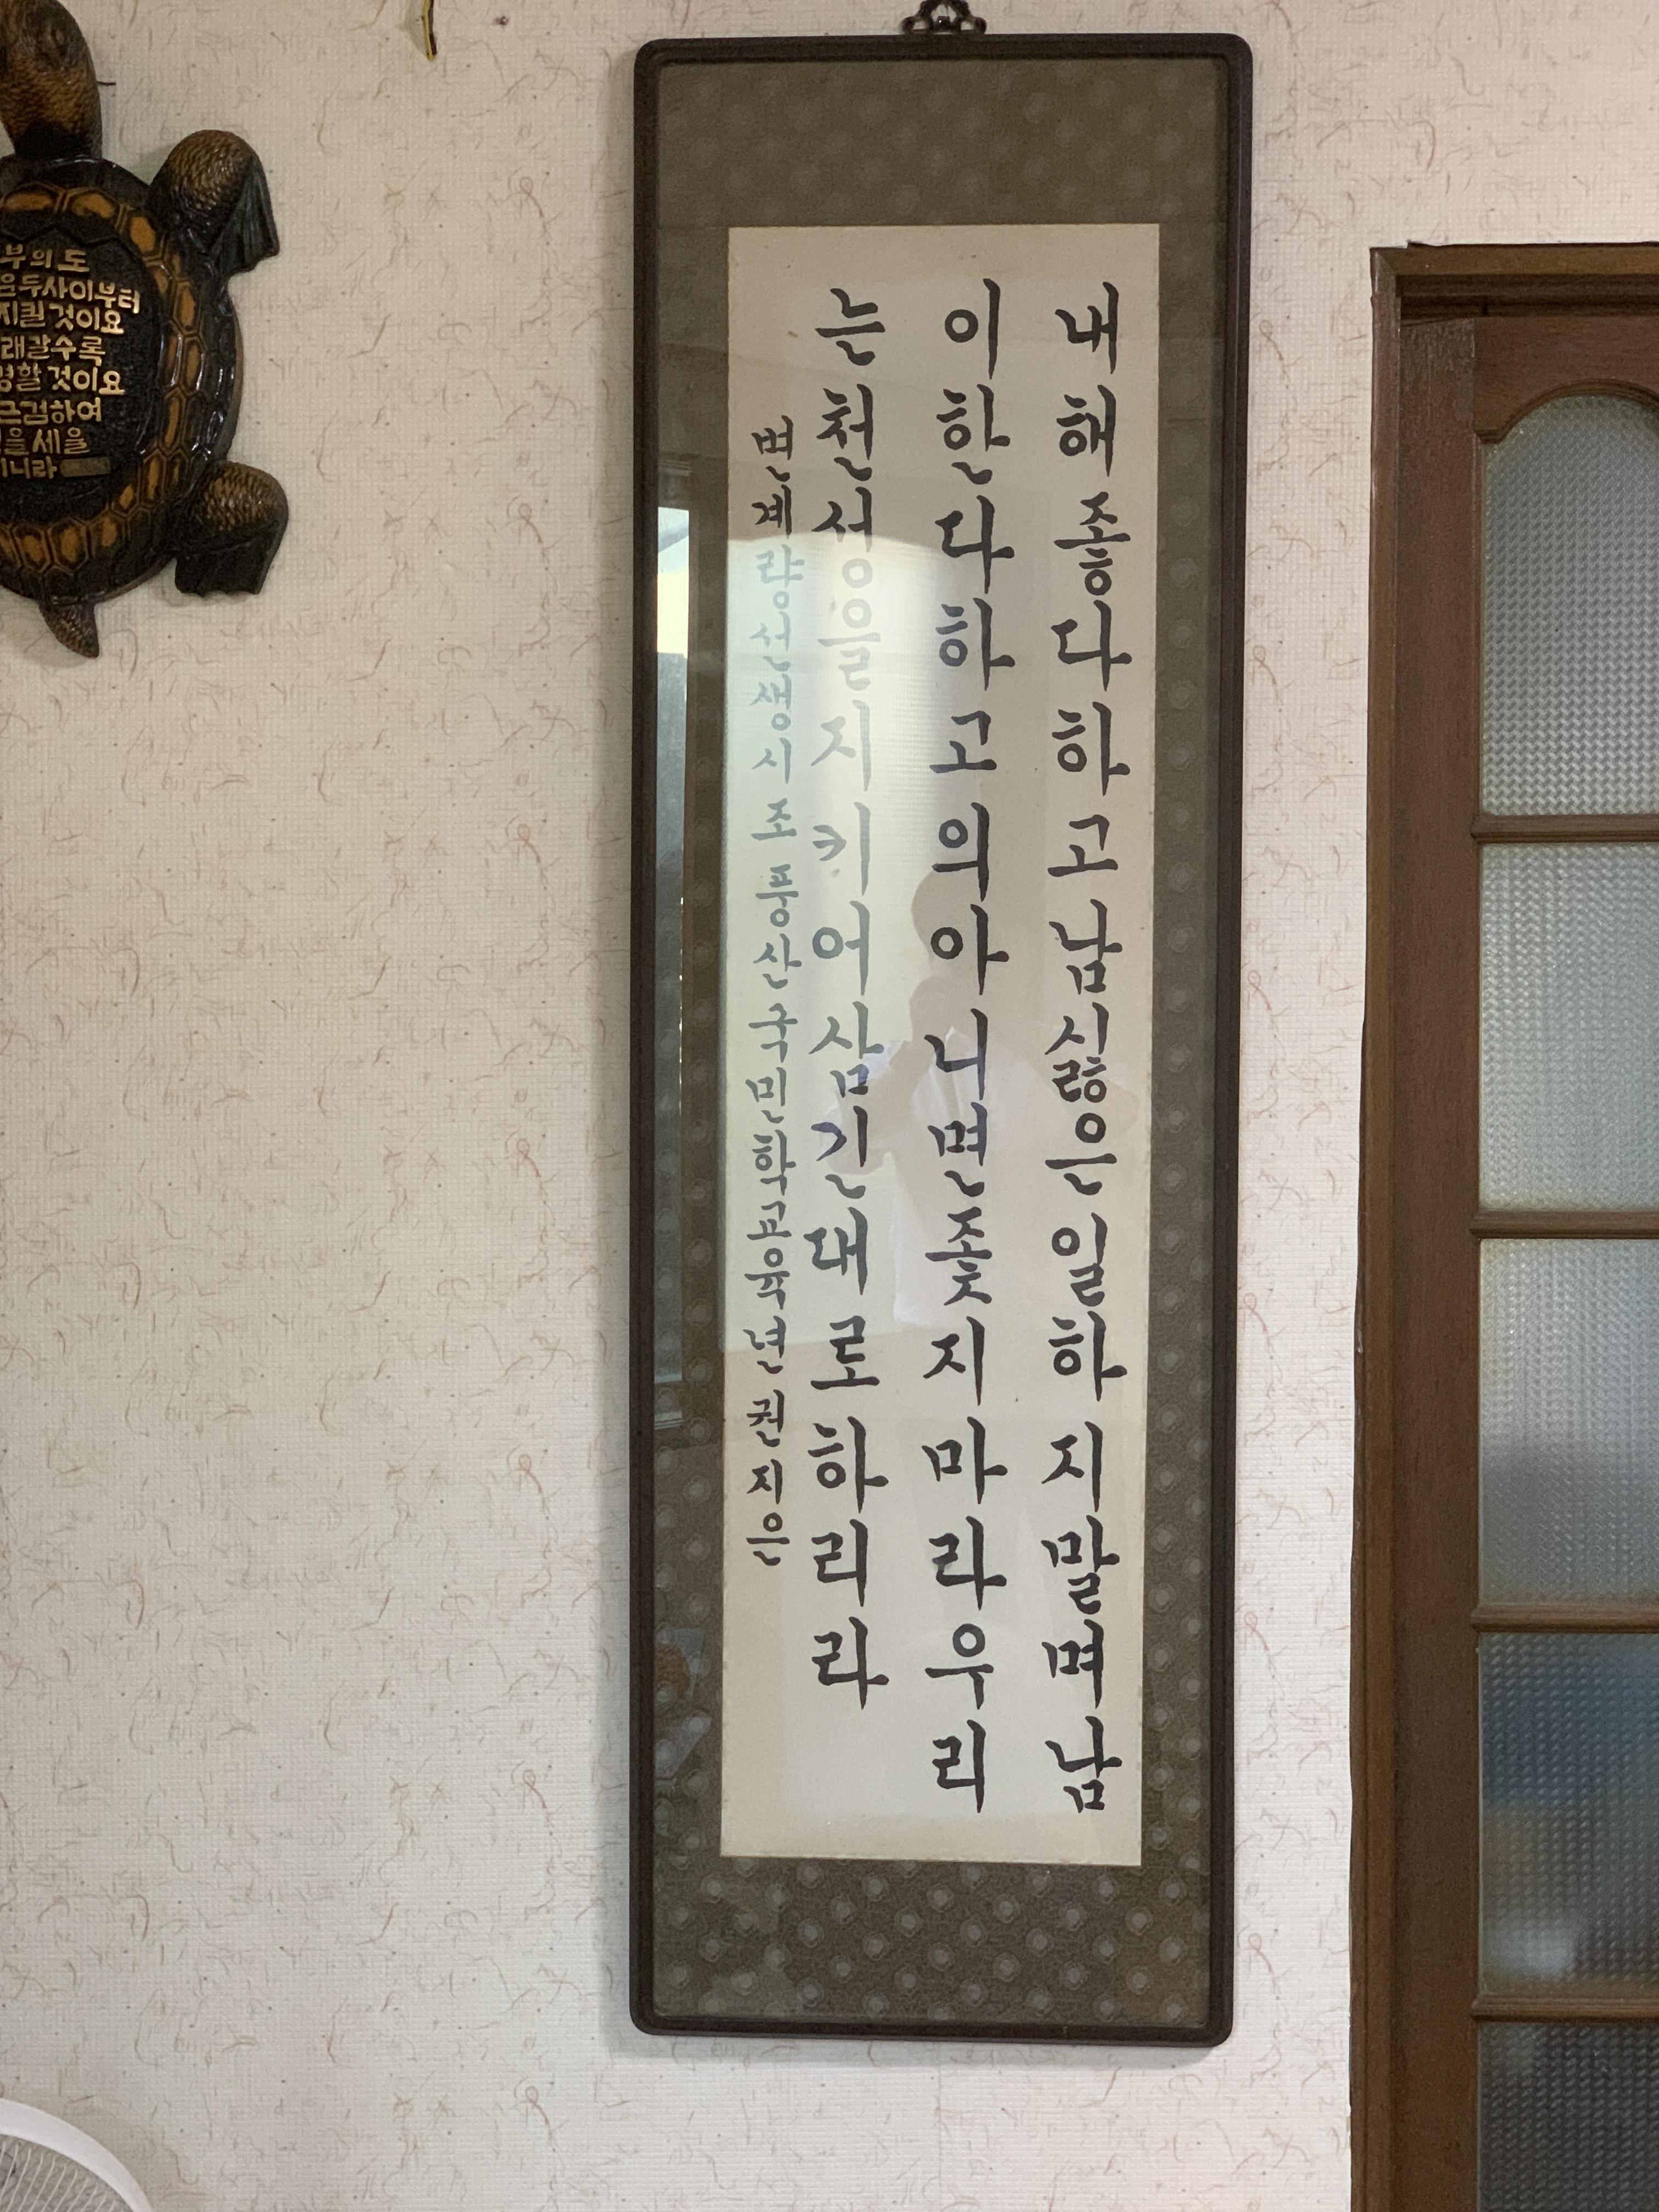 내해좋다하고남싫은일하지말며남
이한다하고의아니면좇지마라우리
는천성을지키어삼긴대로하리라
변계랑선생시조 풍산국민학교육년 권지은
부의 도
두사이부터
지킬 것이요
래갈수록
할 것이요
근검하여
을세울
니라